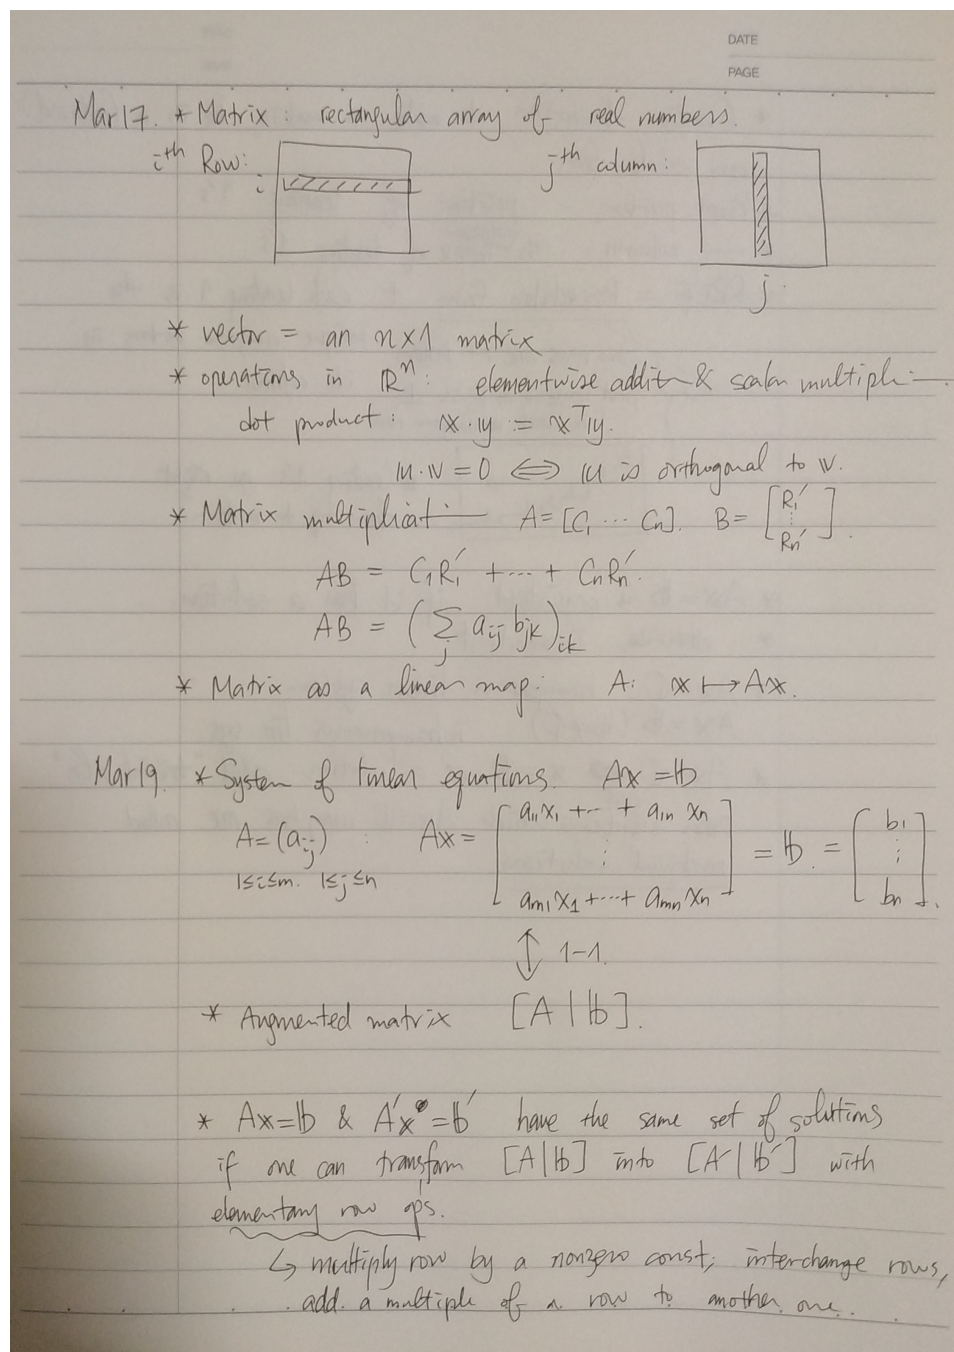 DATE
PAGE
Mar 17. * Matrix : rectangular array of real numbers.
iᵗʰ Row: i jᵗʰ column:
j
* vector = an n×1 matrix
* operations in ℝⁿ: elementwise additn & scalar multipli—.
dot product : 𝕩·𝕪 := 𝕩ᵀ𝕪.
𝕦·𝕧 = 0 ⟺ 𝕦 is orthogonal to 𝕧.
* Matrix multiplicat— A = [C₁ ⋯ Cn]. B = [R₁′ ⋮ Rn′].
AB = C₁R₁′ + ⋯ + CnRn′.
AB = (∑_j a_ij b_jk)_ik
* Matrix as a linear map: A: 𝕩 ↦ A𝕩.
Mar 19. * System of linear equations. A𝕩 = 𝕓
A = (a_ij) : A𝕩 = [a₁₁x₁ + ⋯ + a₁n xn ⋮ am₁x₁ + ⋯ + amn xn] = 𝕓. = [b₁ ⋮ bn].
1≤i≤m. 1≤j≤n
↕ 1-1.
* Augmented matrix [A | 𝕓].
* A𝕩 = 𝕓 & A′𝕩 = 𝕓′ have the same set of solutions
if one can transform [A | 𝕓] into [A′ | 𝕓′] with
elementary row ops.
↳ multiply row by a nonzero const; interchange rows,
add a multiple of a row to another one.